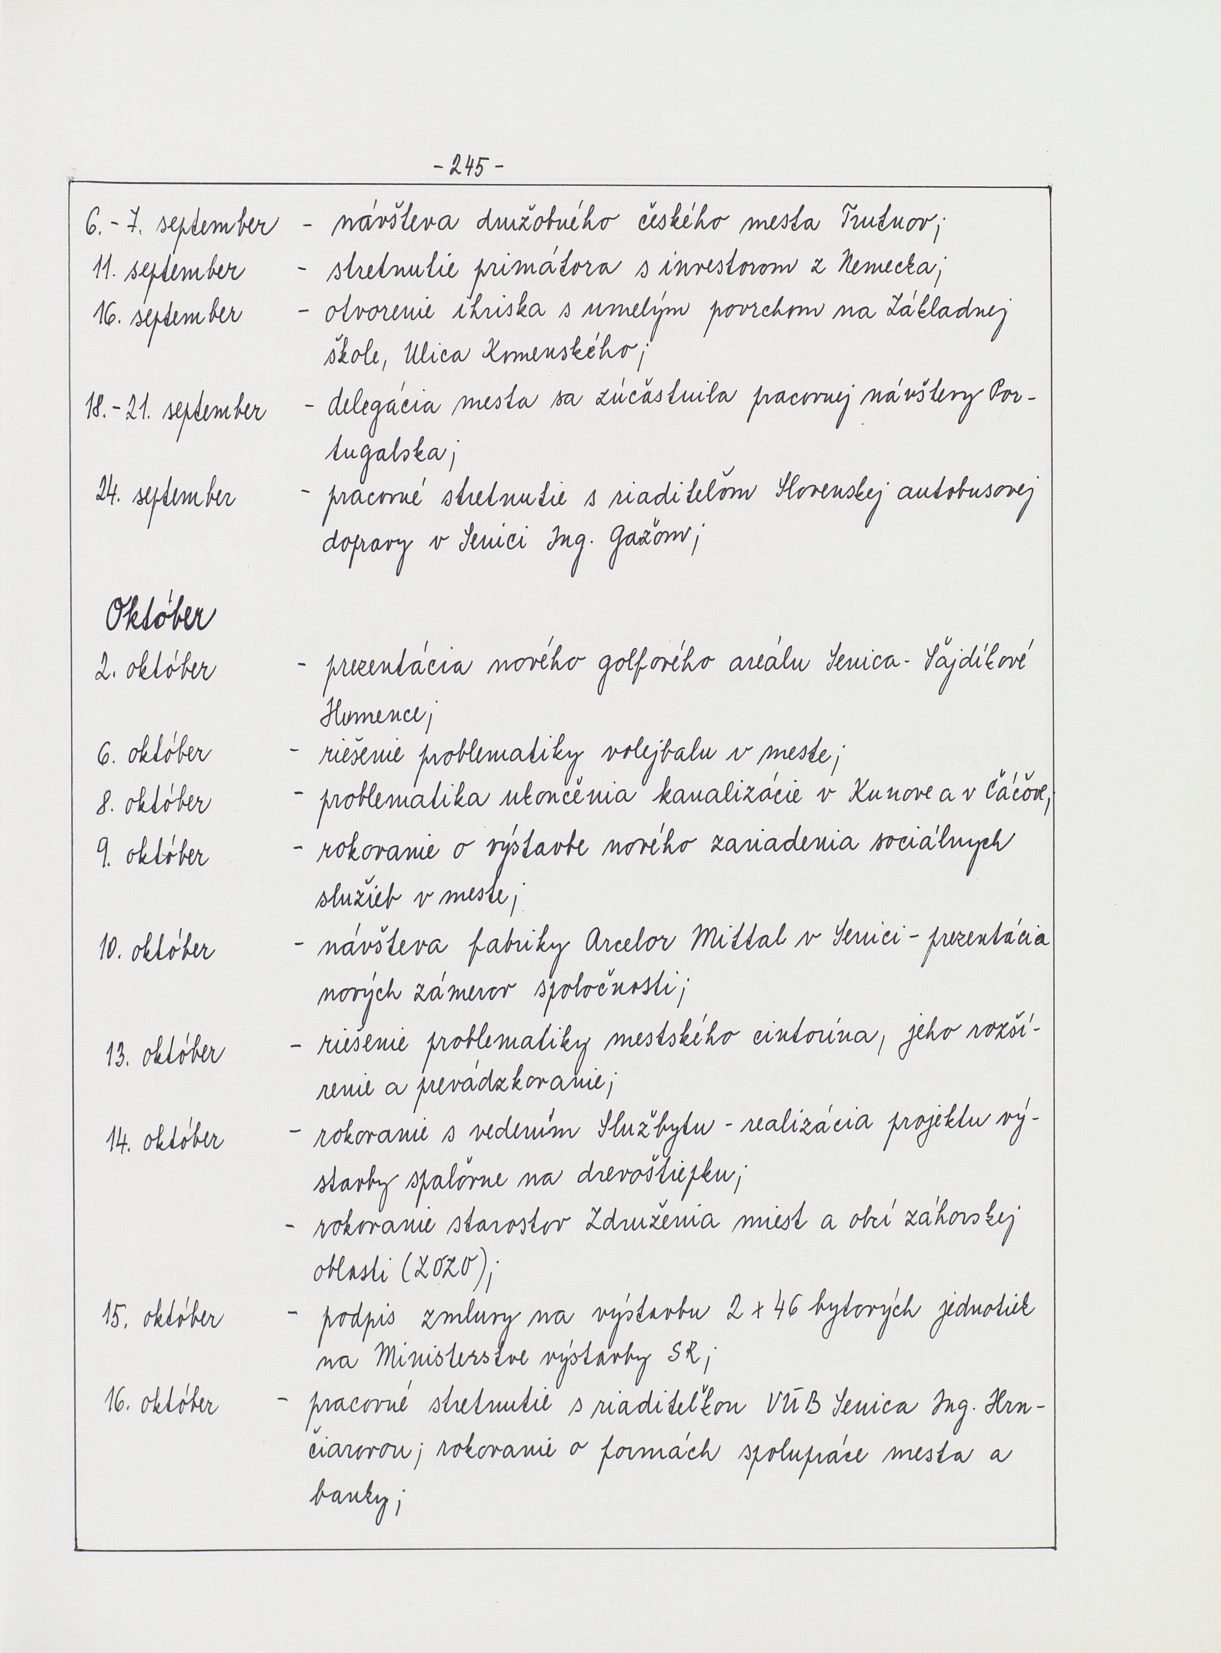 - 245 -
6. - 7. september - návšteva družobného českého mesta Trutnov;
11. september - stretnutie primátora s investorom z Nemecka;
16. september - otvorenie ihriska s umelým povrchom na Základnej
škole, Ulica Komenského;
18. - 21. september - delegácia mesta sa zúčastnila pracovnej návštevy Por-
tugalska;
24. september - pracovné stretnutie s riaditeľom Slovenskej autobusovej
dopravy v Senici Ing. Gažom;
Október
2. október - prezentácia nového golfového areálu Senica - Šajdíkové
Humence;
6. október - riešenie problematiky volejbalu v meste;
8. október - problematika ukončenia kanalizácie v Kunove a v Čáčove;
9. október - rokovanie o výstavbe nového zariadenia sociálnych
služieb v meste;
10. október - návšteva fabriky Arcelor Mittal v Senici - prezentácia
nových zámerov spoločnosti;
13. október - riešenie problematiky mestského cintorína, jeho rozší-
renie a prevádzkovanie;
14. október - rokovanie s vedením Službytu - realizácia projektu vý-
stavby spaľovne na drevoštiepku;
- rokovanie starostov Združenia miest a obcí záhorskej
oblasti (ZOZO);
15. október - podpis zmluvy na výstavbu 2 x 46 bytových jednotiek
na Ministerstve výstavby SR;
16. október - pracovné stretnutie s riaditeľkou VÚB Senica Ing. Hrn-
čiarovou; rokovanie o formách spolupráce mesta a
banky;